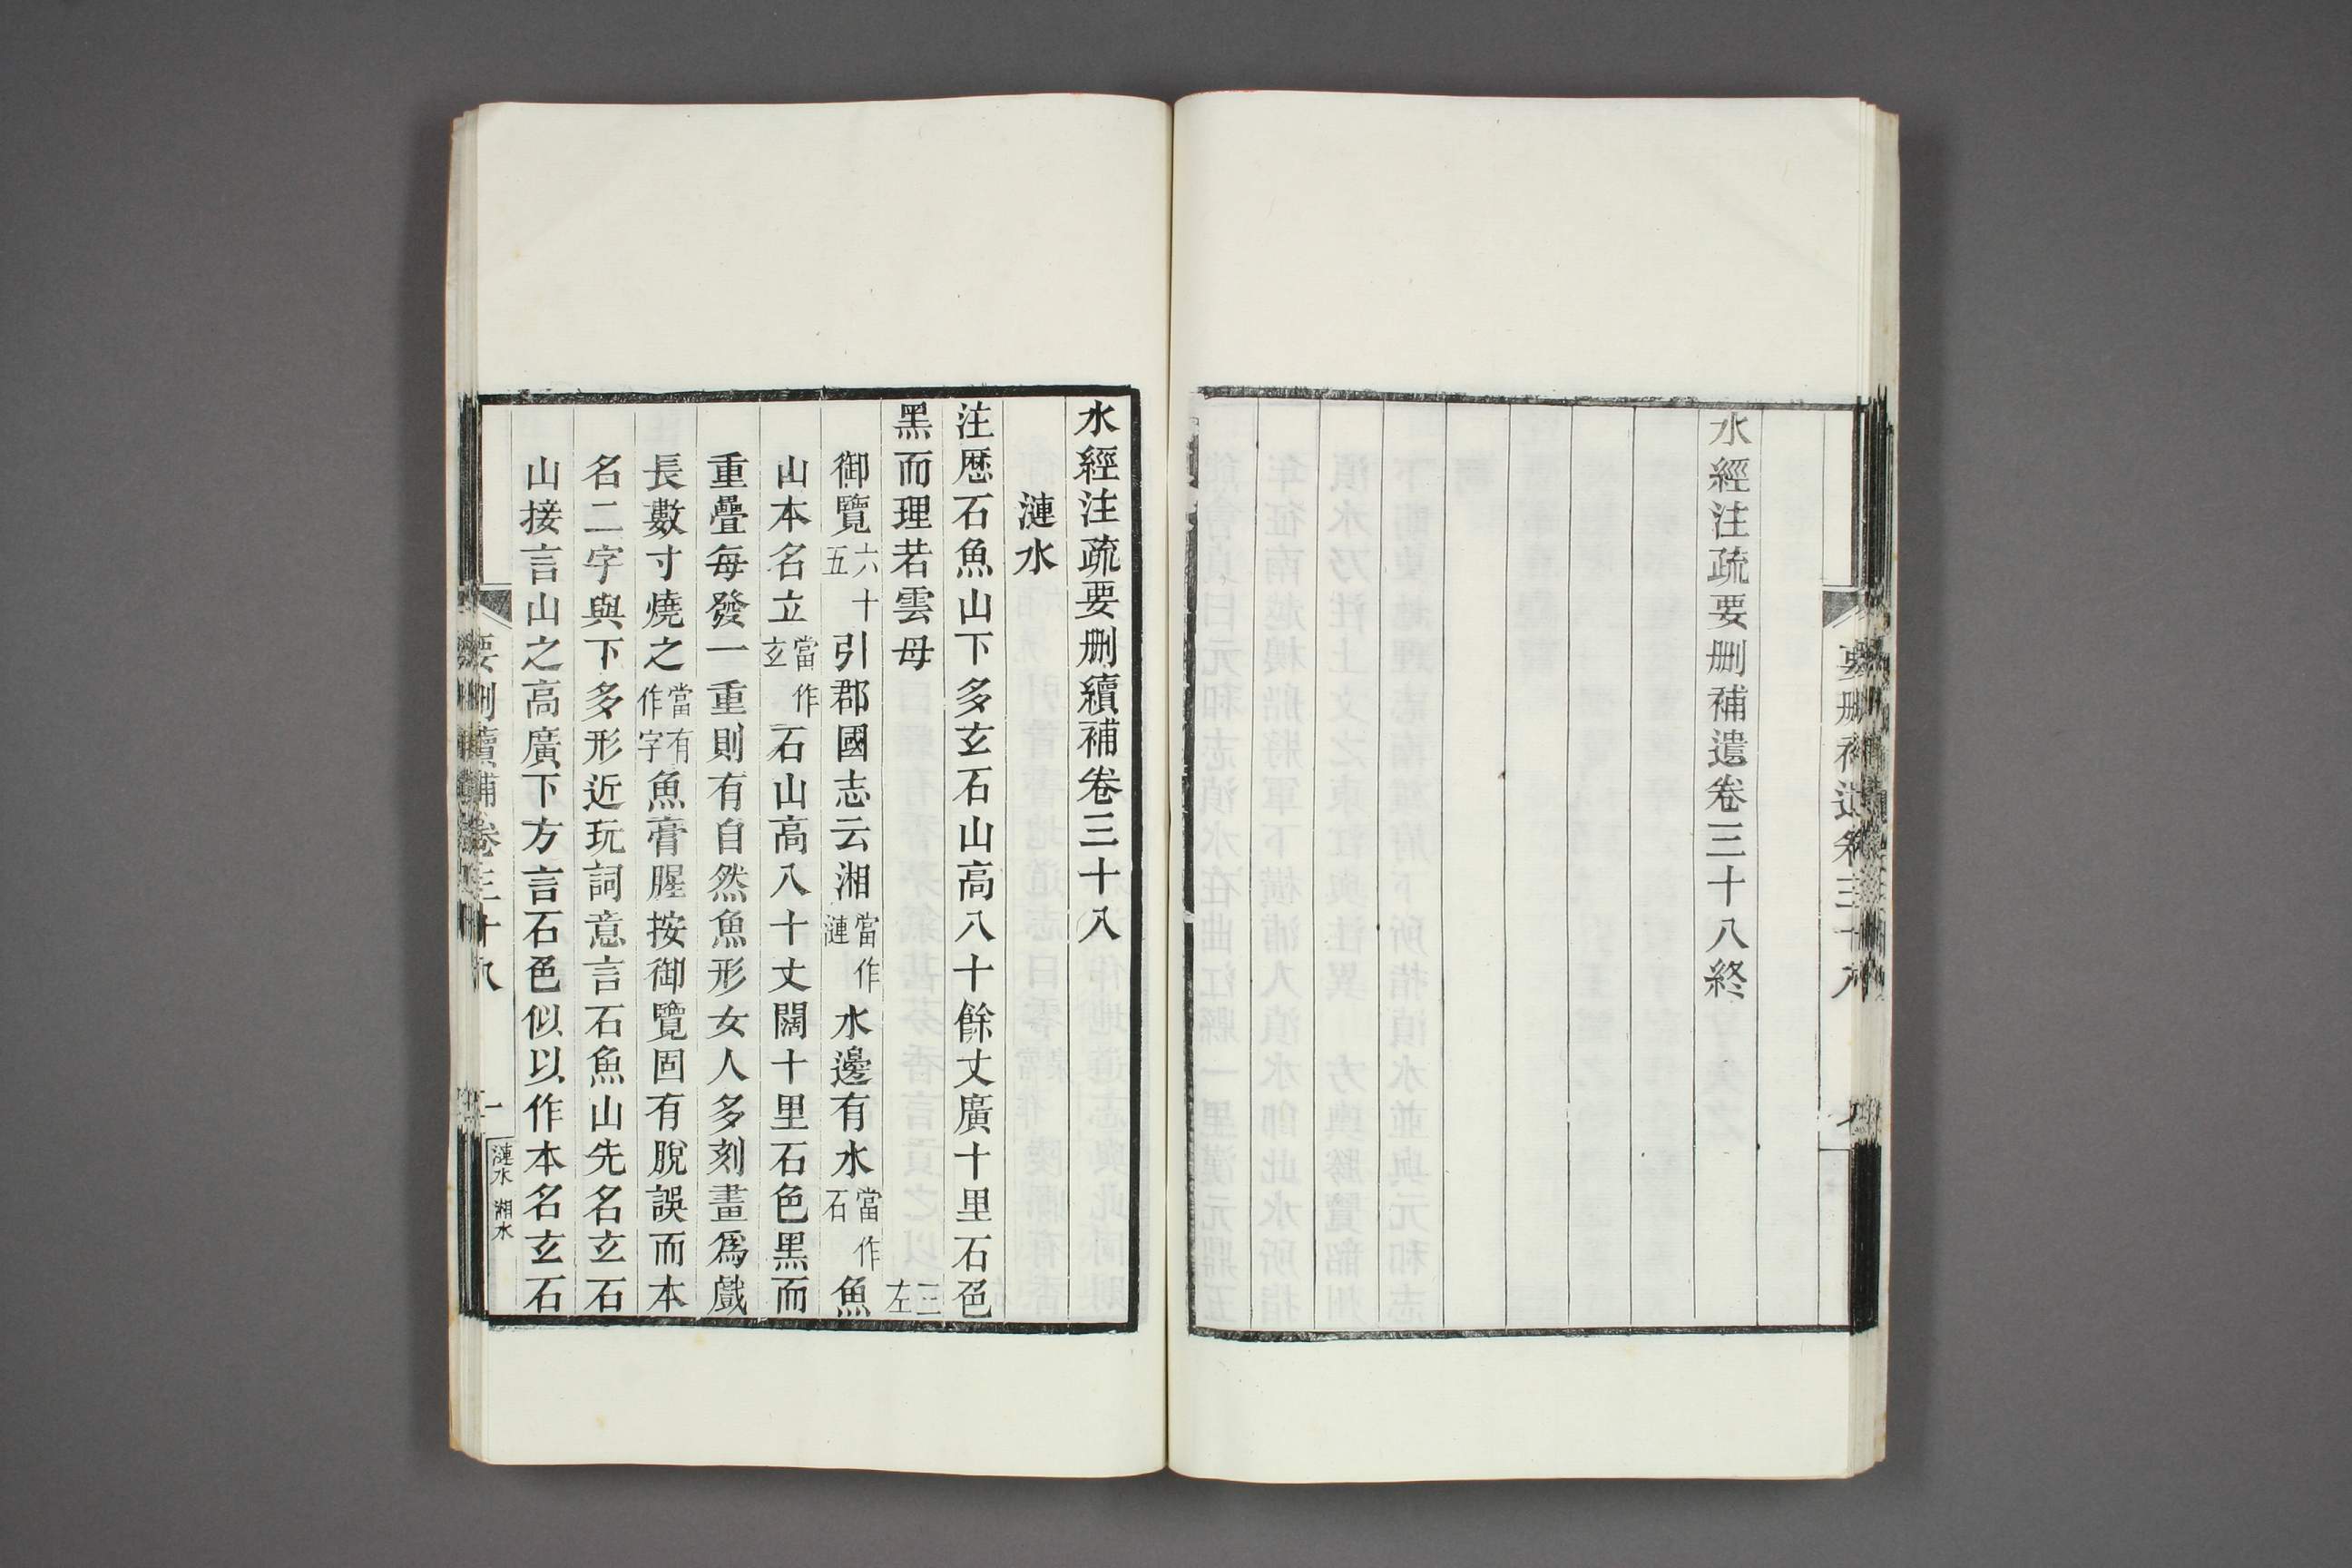 水經注疏要刪補遺卷三十八終
水經注疏要刪續補卷三十八
漣水
注歷石魚山下多玄石山高八十餘丈廣十里石色
黑而理若雲母 三左
御覽六十五引郡國志云湘當作漣水邊有水當作石魚
山本名立當作玄石山高八十丈闊十里石色黑而
重疊每發一重則有自然魚形女人多刻畫爲戲
長數寸燒之當有作字魚膏腥按御覽固有脫誤而本
名二字與下多形近玩詞意言石魚山先名玄石
山接言山之高廣下方言石色似以作本名玄石
要刪續補卷三十八 一 漣水 湘水